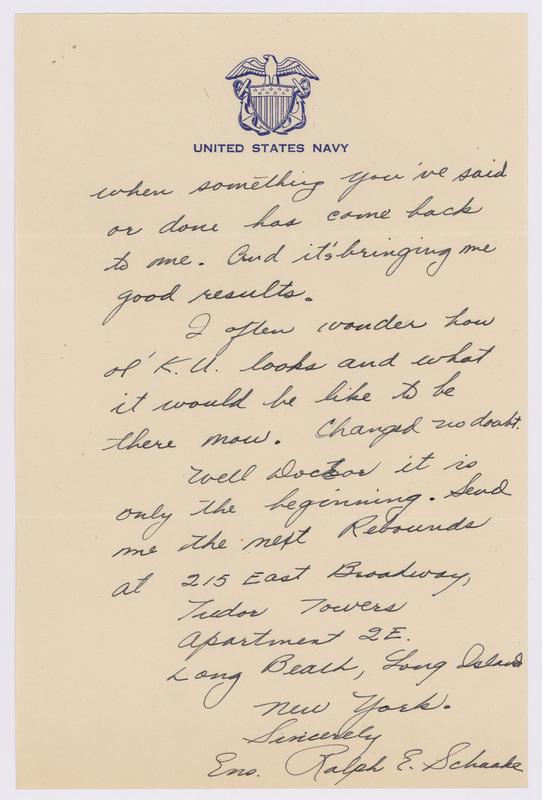 UNITED STATES NAVY
when something you've said
or done has come back
to me. And it's bringing me
good results.
I often wonder how
ol' K.U. looks and what
it would be like to be
there now. Changed no doubt.
Well Doctor it is
only the beginning. Send
me the next Rebounds
at 215 East Broadway,
Tudor Towers
Apartment 2E.
Long Beach, Long Island
New York.
Sincerely
Ens. Ralph E. Schaake